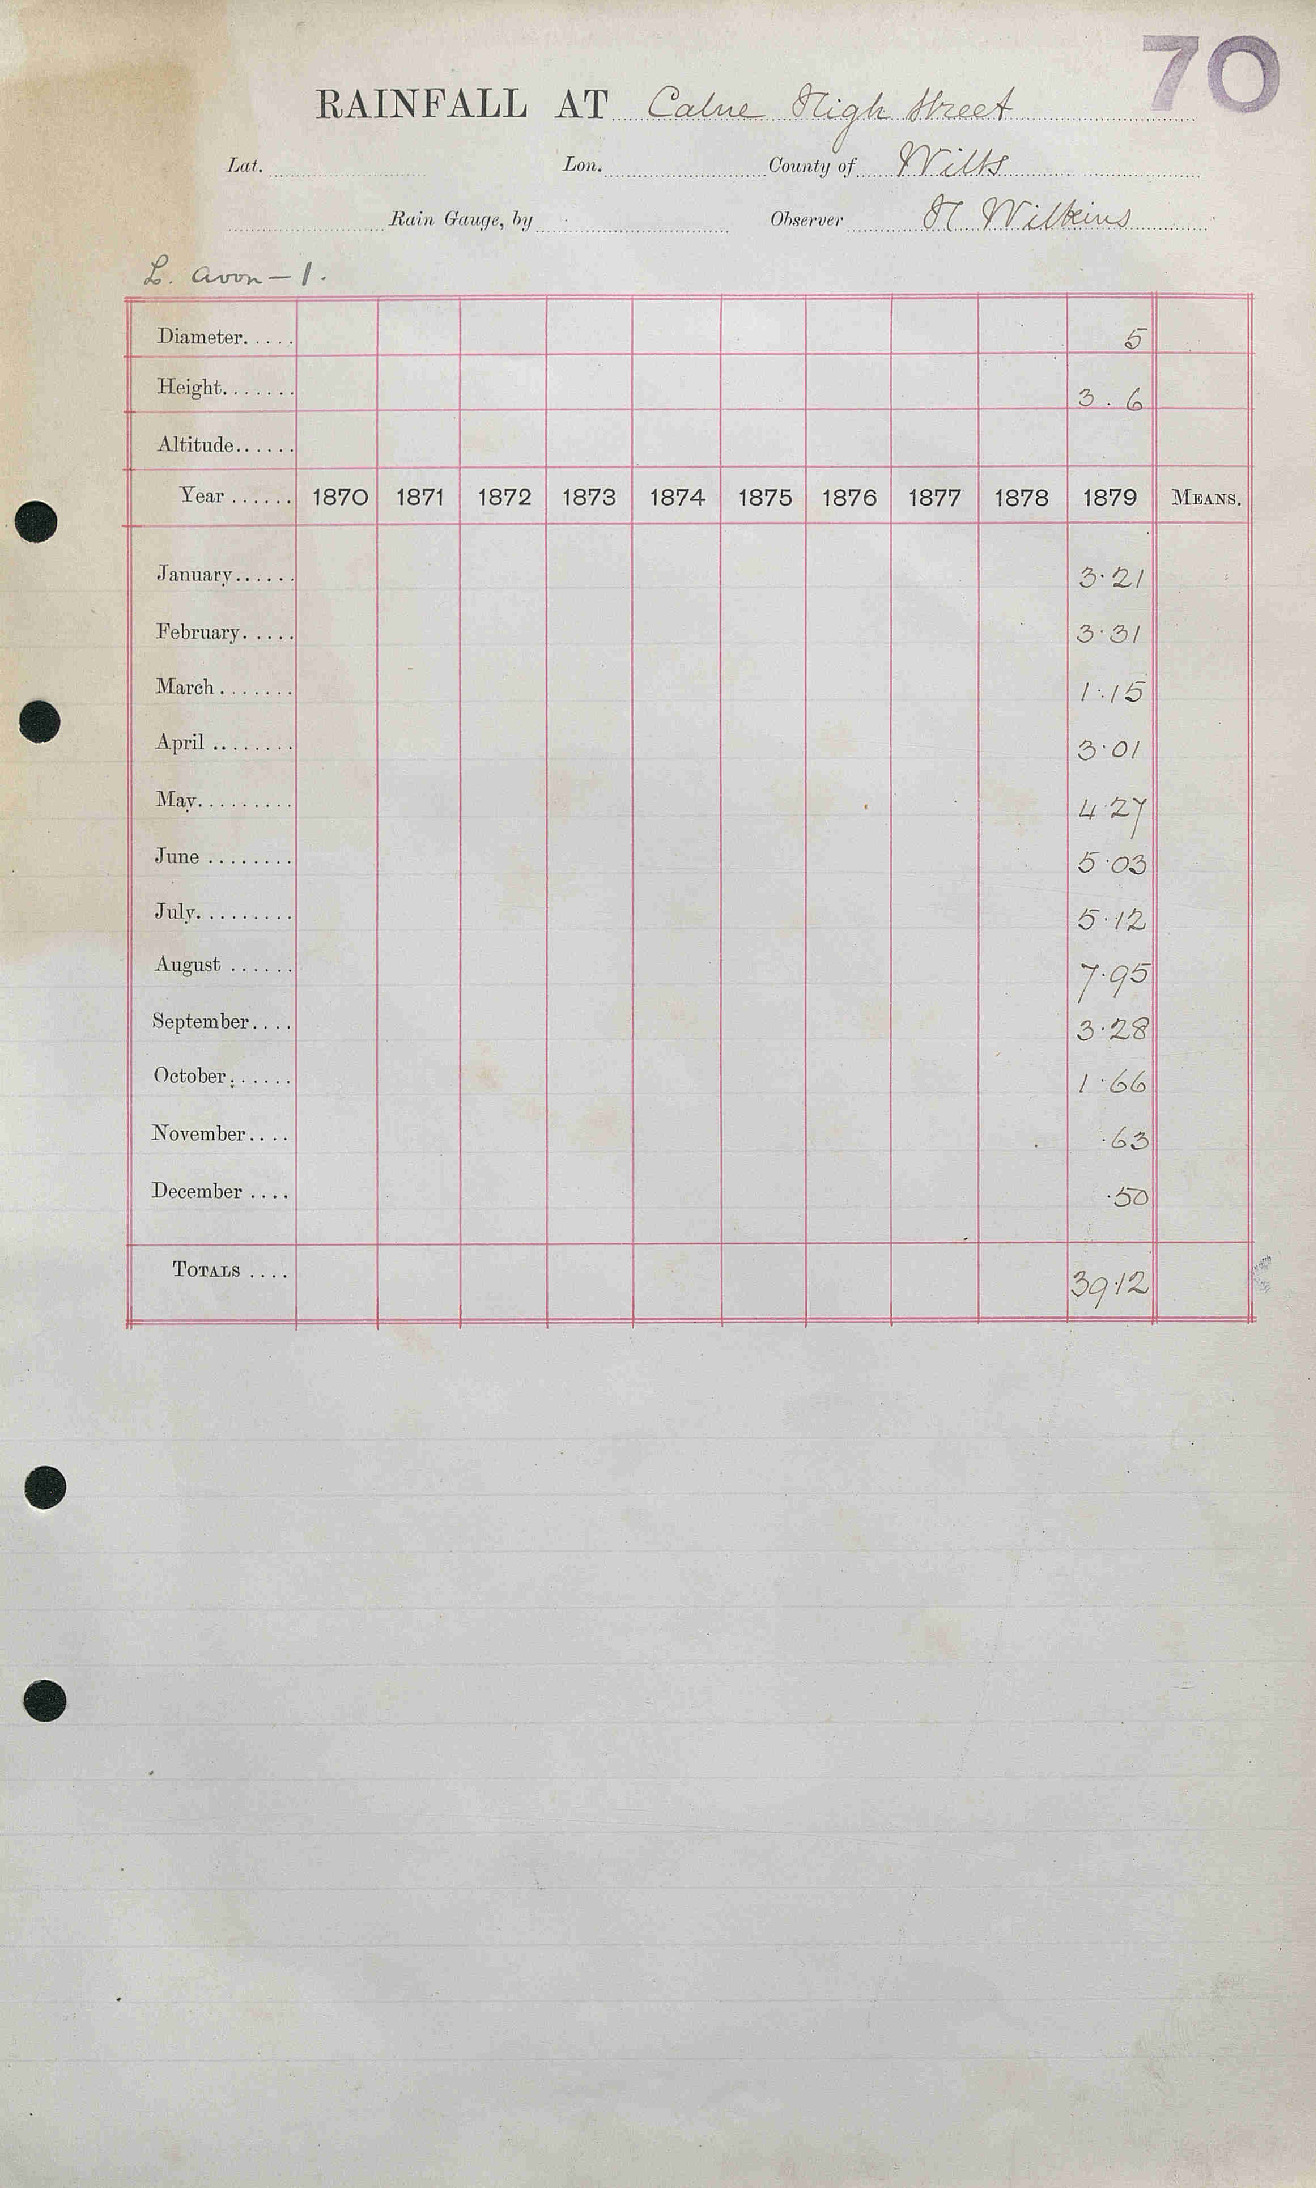 70
RAINFALL AT Calne High Street
Lat. Lon. County of Wilts
Rain Gauge, by Observer H Wilkins
L. Avon — 1.
Diameter..... 5
Height....... 3 . 6
Altitude......
Year ...... 1870 1871 1872 1873 1874 1875 1876 1877 1878 1879 MEANS.
January...... 3·21
February..... 3·31
March ....... 1·15
April ........ 3·01
May......... 4·27
June ........ 5·03
July......... 5·12
August ...... 7·95
September.... 3·28
October...... 1·66
November.... ·63
December .... ·50
TOTALS .... 39·12